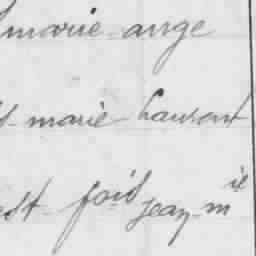 marie-ange
marie Laurent
est fois jean-m ie